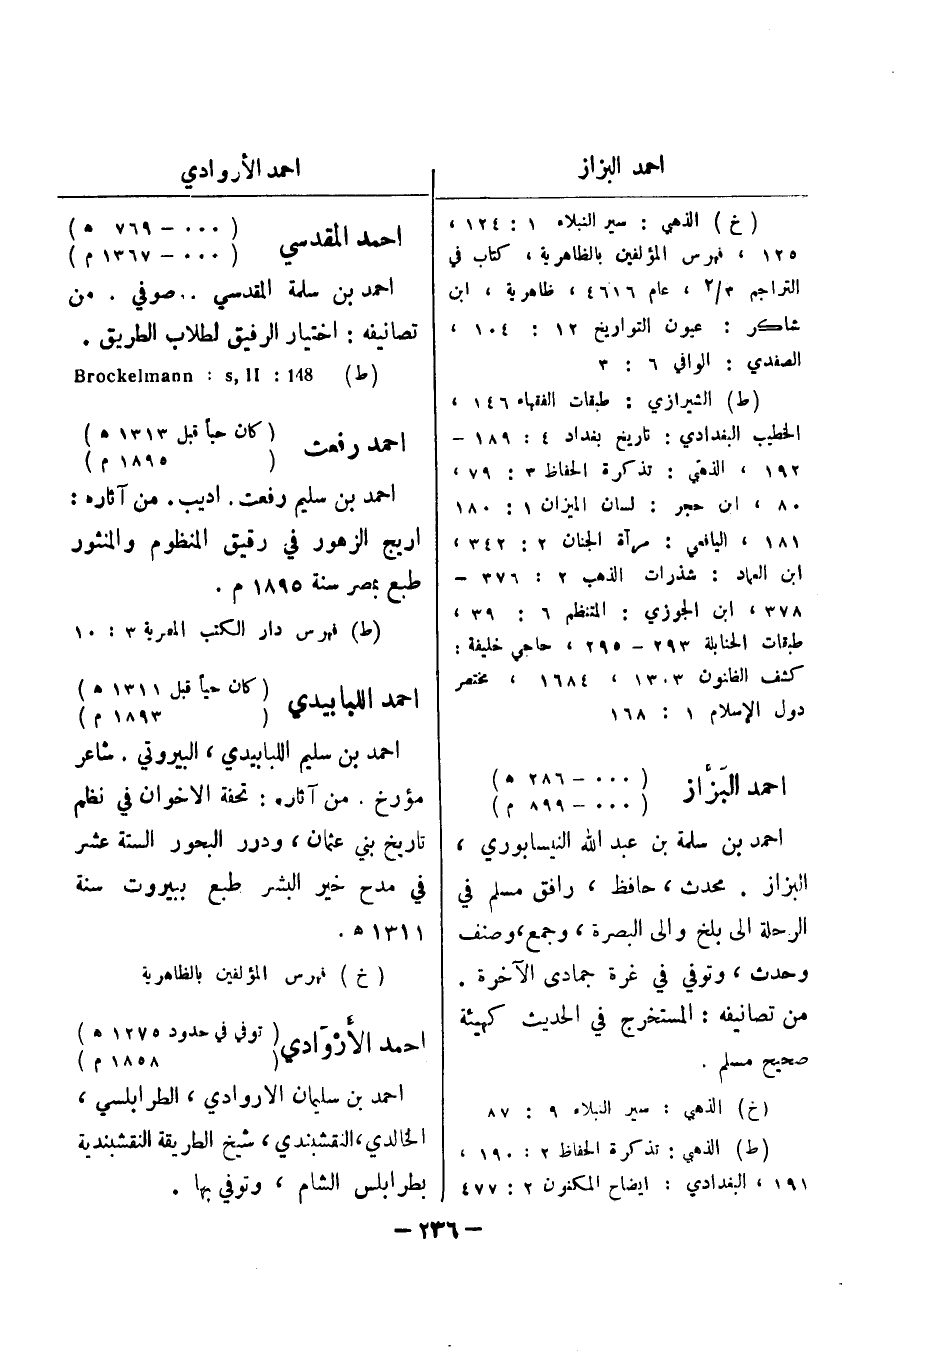 احمد البزاز
(خ) الذهبي : سير النبلاء ١ : ١٢٤ ،
١٢٥ ، فهرس المؤلفين بالظاهرية ، كتاب في
التراجم ٢/٣ ، عام ٤٦١٦ ، ظاهرية ، ابن
شاكر : عيون التواريخ ١٢ : ١٠٤ ،
الصفدي : الوافي ٦ : ٣
(ط) الشيرازي : طبقات الفقهاء ١٤٦ ،
الخطيب البغدادي : تاريخ بغداد ٤ : ١٨٩ –
١٩٢ ، الذهبي : تذكرة الحفاظ ٣ : ٧٩ ،
٨٠ ، ابن حجر : لسان الميزان ١ : ١٨٠
١٨١ ، اليافعي : مرآة الجنان ٢ : ٣٤٢ ،
ابن العماد : شذرات الذهب ٢ : ٣٧٦ –
٣٧٨ ، ابن الجوزي : المنتظم ٦ : ٣٩ ،
طبقات الحنابلة ٢٩٣ – ٢٩٥ ، حاجي خليفة :
كشف الظنون ١٣٠٣ ، ١٦٨٤ ، مختصر
دول الإسلام ١ : ١٦٨
احمد البَزَّاز (٠٠٠ – ٢٨٦ ه)
(٠٠٠ – ٨٩٩ م)
احمد بن سلمة بن عبد الله النيسابوري ،
البزاز . محدث ، حافظ ، رافق مسلم في
الرحلة الى بلخ والى البصرة ، وجمع ، وصنف
وحدث ، وتوفي في غرة جمادى الآخرة .
من تصانيفه : المستخرج في الحديث كهيئة
صحيح مسلم .
(خ) الذهبي : سير النبلاء ٩ : ٨٧
(ط) الذهبي : تذكرة الحفاظ ٢ : ١٩٠ ،
١٩١ ، البغدادي : ايضاح المكنون ٢ : ٤٧٧
احمد الأروادي
احمد المقدسي (٠٠٠ – ٧٦٩ ه)
(٠٠٠ – ١٣٦٧ م)
احمد بن سلمة المقدسي ... صوفي . من
تصانيفه : اختيار الرفيق لطلاب الطريق .
(ط) Brockelmann : s, II : 148
احمد رفعت (كان حياً قبل ١٣١٣ ه)
(١٨٩٥ م)
احمد بن سليم رفعت . اديب . من آثاره :
اريج الزهور في رقيق المنظوم والمنثور
طبع بمصر سنة ١٨٩٥ م .
(ط) فهرس دار الكتب المصرية ٣ : ١٠
احمد اللبابيدي (كان حياً قبل ١٣١١ ه)
(١٨٩٣ م)
احمد بن سليم اللبابيدي ، البيروتي . شاعر
مؤرخ . من آثاره : تحفة الاخوان في نظم
تاريخ بني عثمان ، ودرر البحور الستة عشر
في مدح خير البشر طبع ببيروت سنة
١٣١١ ه .
(خ) فهرس المؤلفين بالظاهرية
احمد الأَرْوَادي (توفي في حدود ١٢٧٥ ه)
(١٨٥٨ م)
احمد بن سليمان الاروادي ، الطرابلسي ،
الخالدي ، النقشبندي ، شيخ الطريقة النقشبندية
بطرابلس الشام ، وتوفي بها .
– ٢٣٦ –